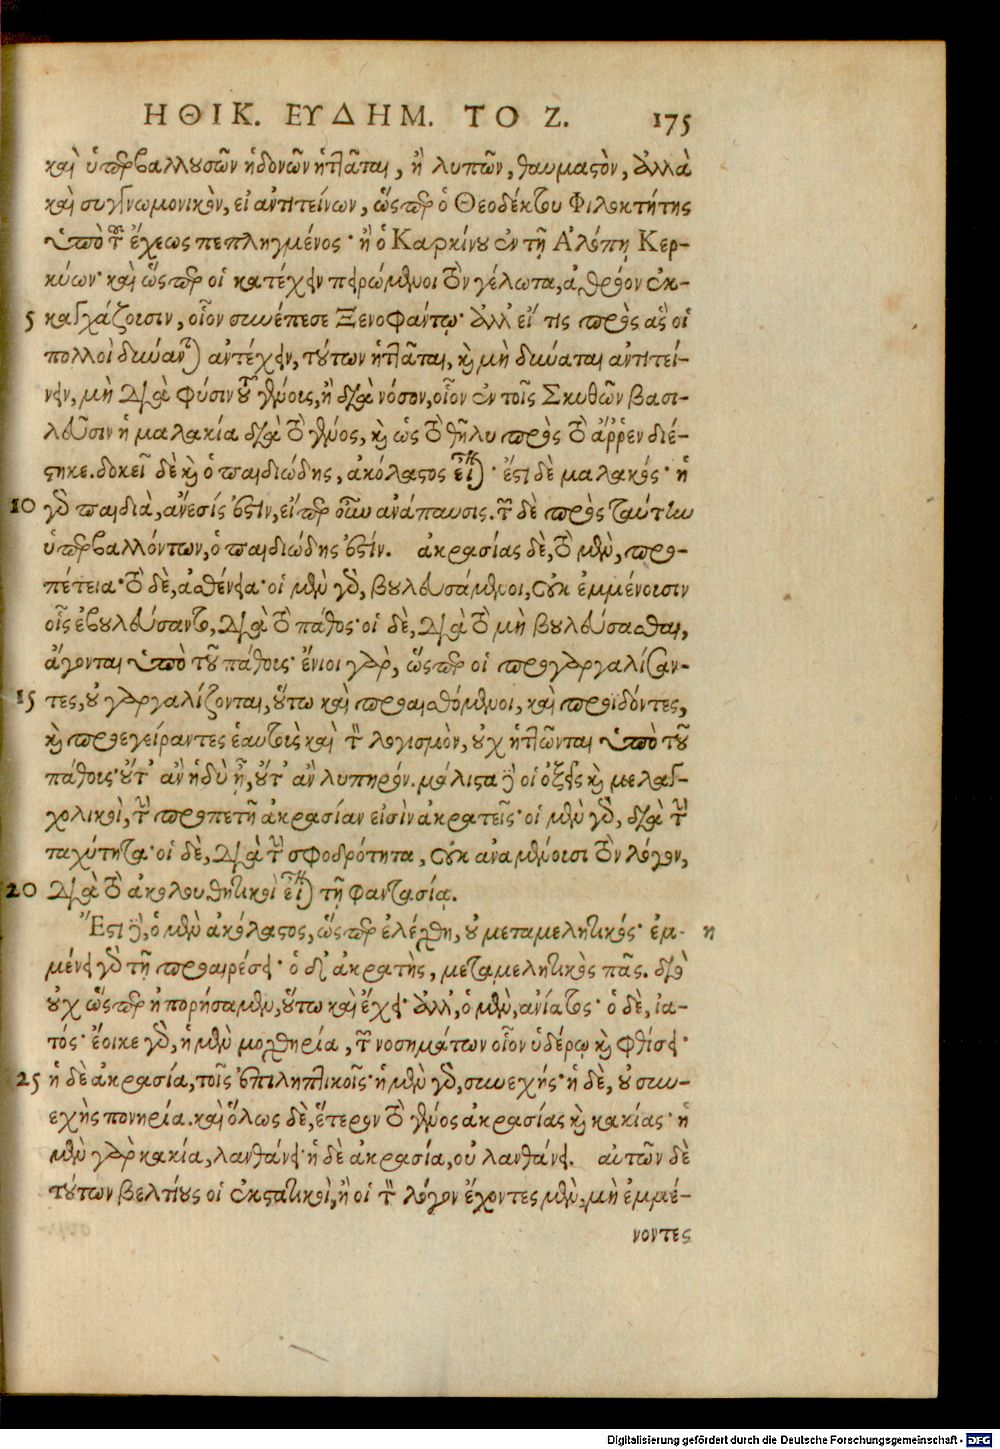 ΗΘΙΚ. ΕΥΔΗΜ. ΤΟ Ζ. 175
καὶ ὑπερβαλλουσῶν ἡδονῶν ἡττᾶται, ἢ λυπῶν, θαυμαστὸν, ἀλλὰ
καὶ συγγνωμονικὸν, εἰ ἀντιτείνων, ὥσπερ ὁ Θεοδέκτου Φιλοκτήτης
ὑπὸ τοῦ ἔχεως πεπληγμένος· ἢ ὁ Καρκίνου ἐν τῇ Ἀλόπῃ Κερ-
κύων· καὶ ὥσπερ οἱ κατέχειν πειρώμενοι τὸν γέλωτα, ἀθρόον ἐκ-
5 καγχάζουσιν, οἷον συνέπεσε Ξενοφάντῳ· ἀλλ' εἴ τις πρὸς ἃς οἱ
πολλοὶ δύνανται ἀντέχειν, τούτων ἡττᾶται, καὶ μὴ δύναται ἀντιτεί-
νειν, μὴ διὰ φύσιν τοῦ γένους, ἢ διὰ νόσον, οἷον ἐν τοῖς Σκυθῶν βασι-
λεῦσιν ἡ μαλακία διὰ τὸ γένος, καὶ ὡς τὸ θῆλυ πρὸς τὸ ἄῤῥεν διέ-
στηκε. δοκεῖ δὲ καὶ ὁ παιδιώδης, ἀκόλαστος εἶναι· ἔστι δὲ μαλακός· ἡ
10 γὰρ παιδιὰ, ἄνεσίς ἐστιν, εἴπερ οὖν ἀνάπαυσις. τῶν δὲ πρὸς ταύτην
ὑπερβαλλόντων, ὁ παιδιώδης ἐστίν. ἀκρασίας δὲ, τὸ μὲν, προ-
πέτεια· τὸ δὲ, ἀσθένεια· οἱ μὲν γὰρ, βουλευσάμενοι, οὐκ ἐμμένουσιν
οἷς ἐβουλεύσαντο, διὰ τὸ πάθος· οἱ δὲ, διὰ τὸ μὴ βουλεύσασθαι,
ἄγονται ὑπὸ τοῦ πάθους· ἔνιοι γὰρ, ὥσπερ οἱ προγαργαλίσαν-
15 τες, οὐ γαργαλίζονται, οὕτω καὶ προαισθόμενοι, καὶ προϊδόντες,
καὶ προεγείραντες ἑαυτοὺς καὶ τὸν λογισμὸν, οὐχ ἡττῶνται ὑπὸ τοῦ
πάθους· οὔτ' ἂν ἡδὺ ᾖ, οὔτ' ἂν λυπηρόν. μάλιστα δὲ οἱ ὀξεῖς καὶ μελαγ-
χολικοὶ, τὴν προπετῆ ἀκρασίαν εἰσὶν ἀκρατεῖς· οἱ μὲν γὰρ, διὰ τὴν
ταχύτητα· οἱ δὲ, διὰ τὴν σφοδρότητα, οὐκ ἀναμένουσι τὸν λόγον,
20 διὰ τὸ ἀκολουθητικοὶ εἶναι τῇ φαντασίᾳ.
Ἔστι δὲ, ὁ μὲν ἀκόλαστος, ὥσπερ ἐλέχθη, οὐ μεταμελητικός· ἐμ- η
μένει γὰρ τῇ προαιρέσει· ὁ δ' ἀκρατὴς, μεταμελητικὸς πᾶς. διὸ
οὐχ ὥσπερ ἠπορήσαμεν, οὕτω καὶ ἔχει· ἀλλ', ὁ μὲν, ἀνίατος· ὁ δὲ, ἰα-
τός· ἔοικε γὰρ, ἡ μὲν μοχθηρία, τῶν νοσημάτων οἷον ὑδέρῳ καὶ φθίσει·
25 ἡ δὲ ἀκρασία, τοῖς ἐπιληπτικοῖς· ἡ μὲν γὰρ, συνεχής· ἡ δὲ, οὐ συν-
εχὴς πονηρία. καὶ ὅλως δὲ, ἕτερον τὸ γένος ἀκρασίας καὶ κακίας· ἡ
μὲν γὰρ κακία, λανθάνει· ἡ δὲ ἀκρασία, οὐ λανθάνει. αὐτῶν δὲ
τούτων βελτίους οἱ ἐκστατικοὶ, ἢ οἱ τὸν λόγον ἔχοντες μὲν, μὴ ἐμμέ-
νοντες
Digitalisierung gefördert durch die Deutsche Forschungsgemeinschaft - DFG